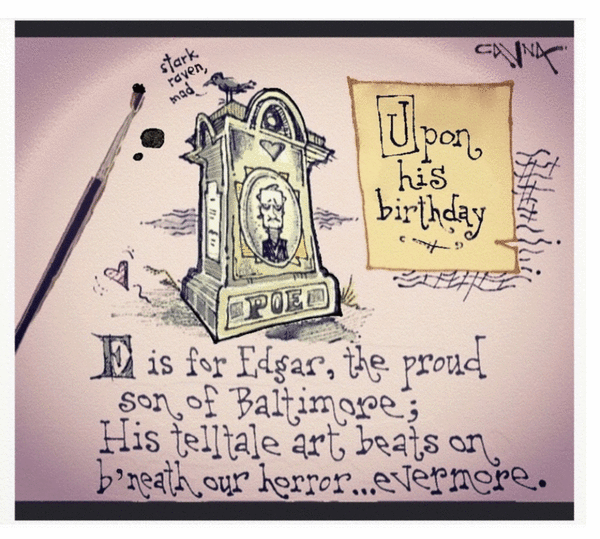 CAVNA
stark
raven,
mad
Upon
his
birthday
POE
E is for Edgar, the proud
son of Baltimore;
His telltale art beats on
b'neath our horror...evermore.